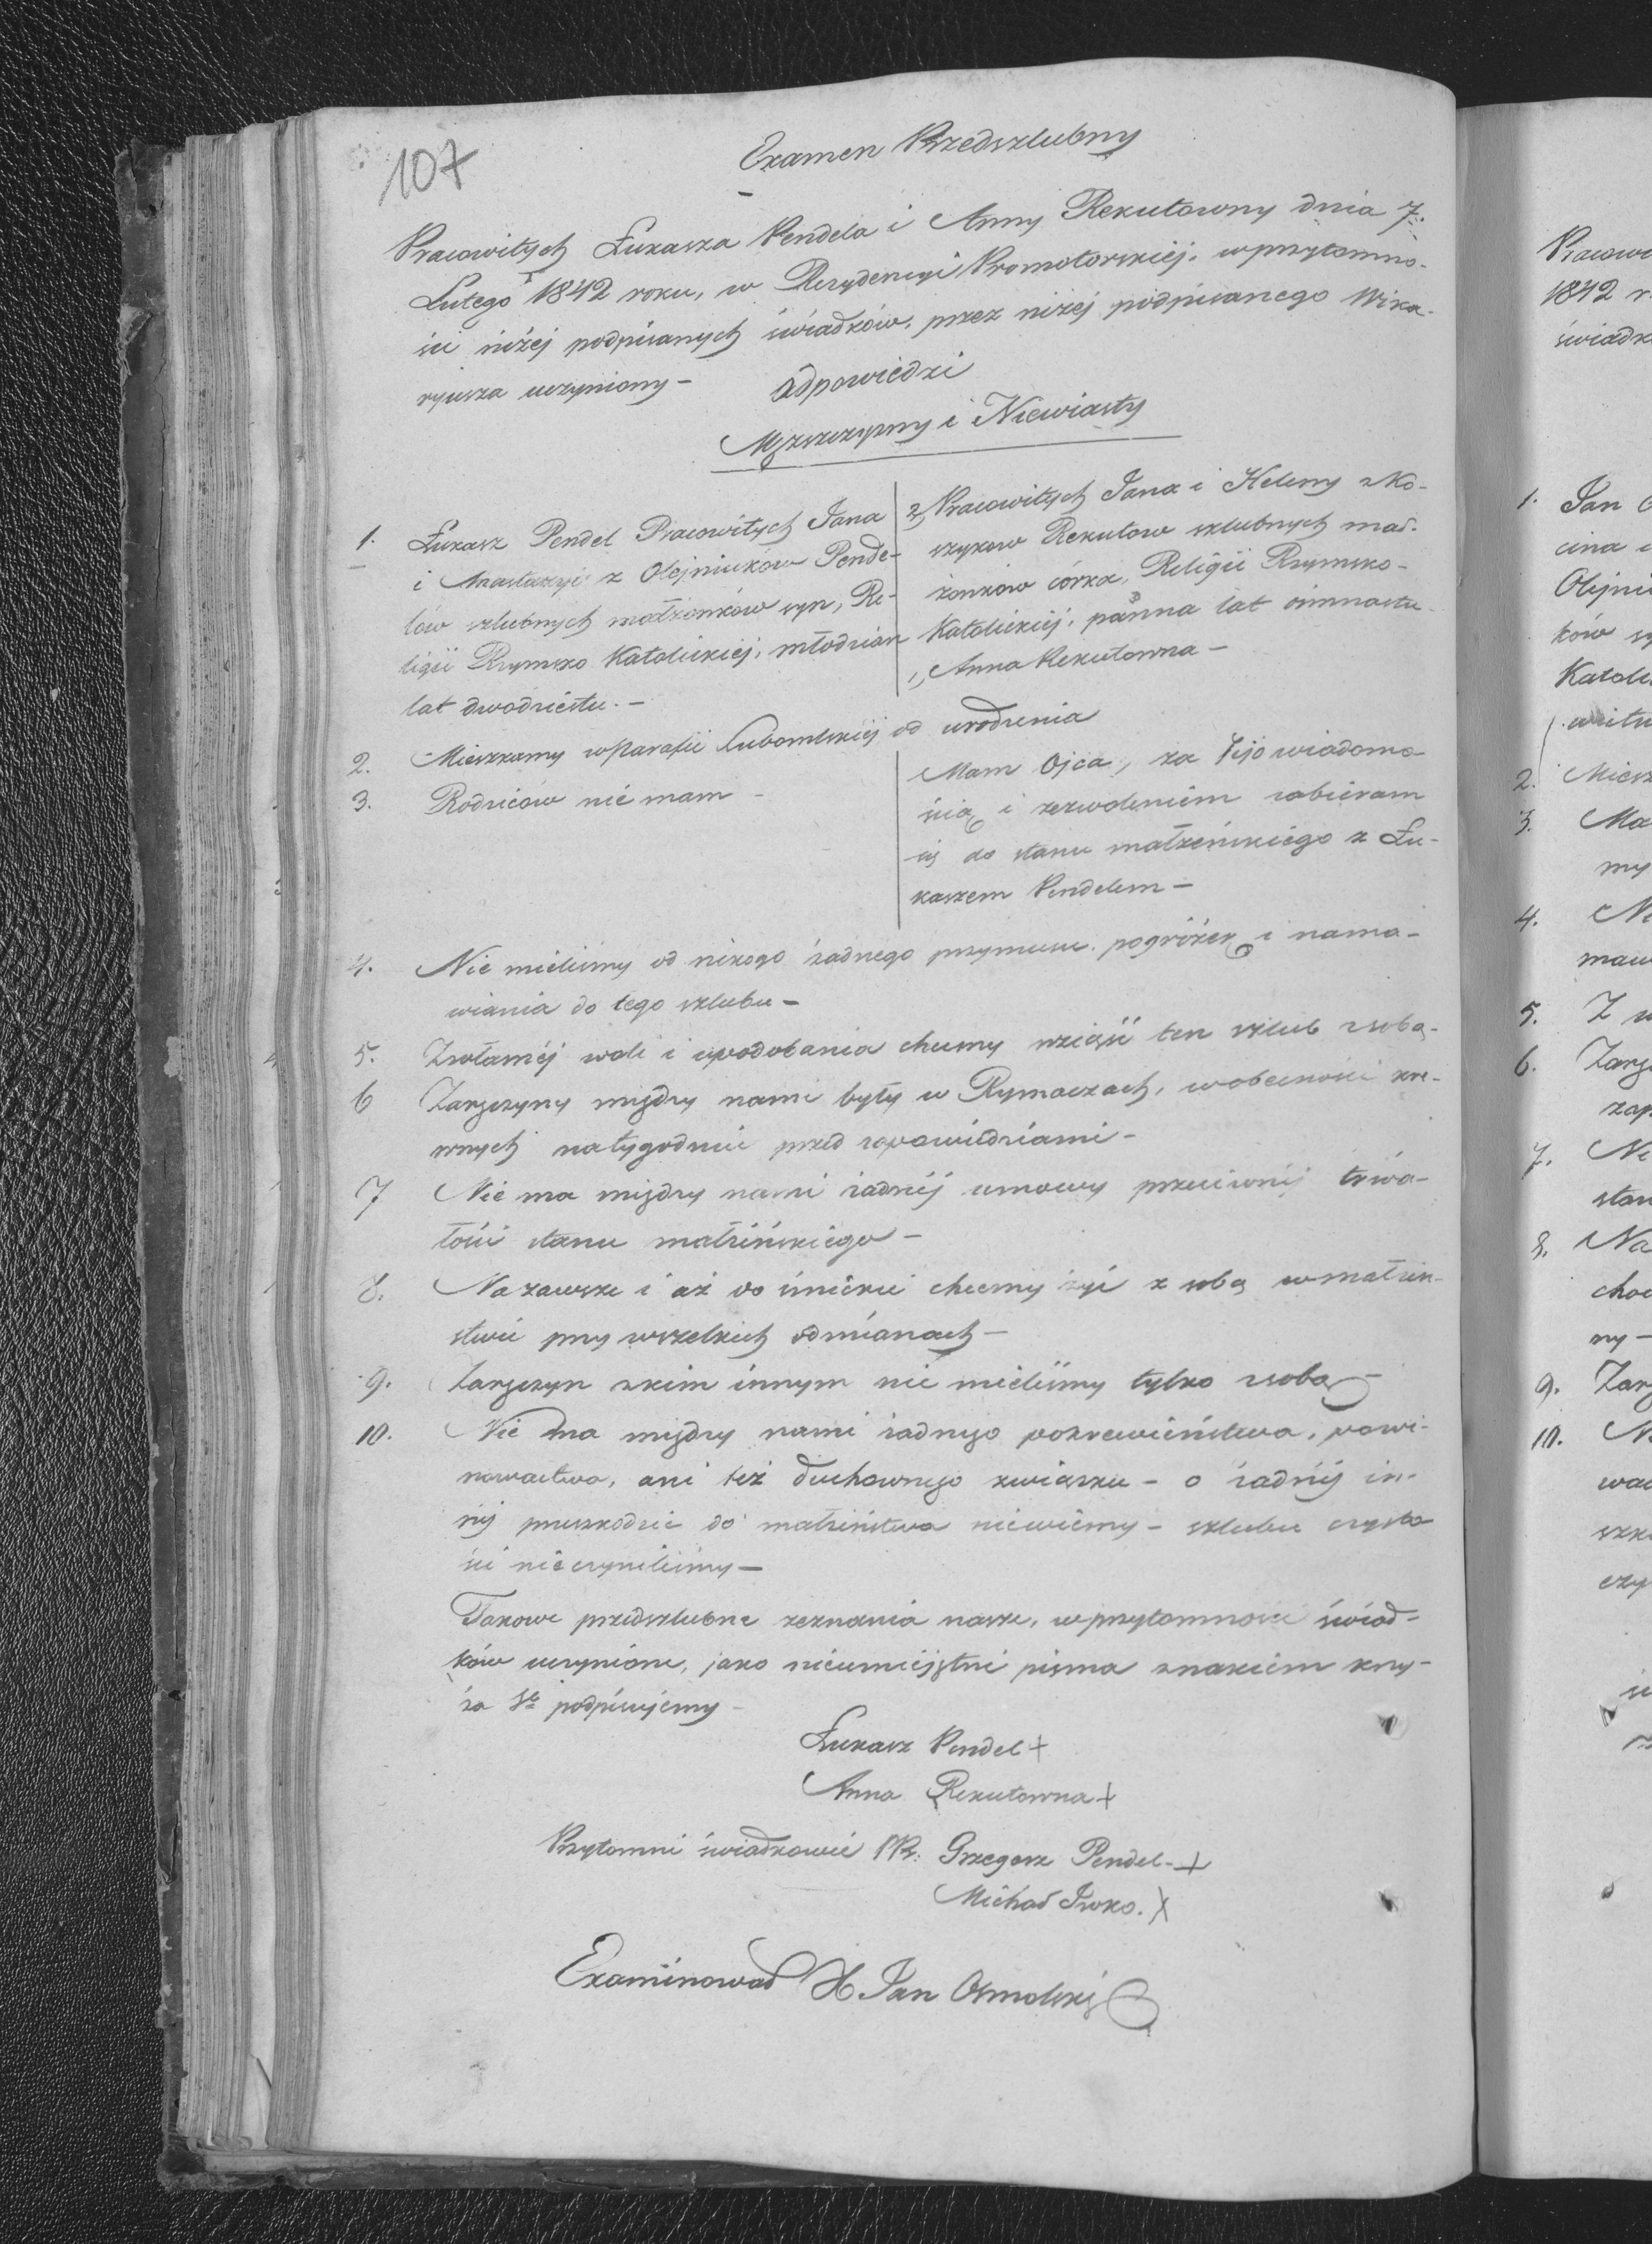 107
Examen Przedszlubny
Pracowitych Łukasza Pendela i Anny Rekutowny dnia 7.
Lutego 1842 roku, w Rezydencyi Promotorskiej, w przytomno-
ści niżéj podpisanych świadków, przez niżéj podpisanego Wika-
ryusza uczyniony –
Odpowiedzi
Męzszczyzny i Niewiasty
1. Łukasz Pendel Pracowitych Jana
i Anastazyi z Olejników Pende-
lów szlubnych małżonków syn, Re-
ligii Rzymsko Katolickiéj, młodzian
lat dwodziestu. –
2, Pracowitych Jana i Heleny z Ko-
szykow Rekutow szlubnych mał-
żonkow córka, Religii Rzymsko-
Katolickiéj, panna lat ośmnastu
1, Anna Rekutowna –
2. Mieszkamy w Parafii Lubomlskiéj od urodzenia
3. Rodziców nie mam –
Mam Ojca, za Jego wiadomo
ścią i zezwoleniem zabieram
się do stanu małżeńskiego z Łu-
kaszem Pendelem –
4. Nie mieliśmy od nikogo żadnego przymusu, pogróżek i nama-
wiania do tego szlubu –
5. Z własnéj woli i upodobania chcemy wziąść ten szlub z sobą –
6 Zaręczyny między nami były w Rymaczach, w obecności kre-
wnych na tygodnie przed zapowiedziami –
7 Nie ma między nami żadnéj umowy przeciwnéj trwa-
łości stanu małżeńskiego –
8. Na zawsze i aż do śmierci chcemy żyć z sobą w małżeń-
stwie przy wszelkich odmianach –
9. Zaręczyn z kim innym nie mieliśmy tylko z sobą –
10. Nie ma między nami żadnego pokrewieństwa, powi-
nowactwa, ani też duchownego związku – o żadnéj in-
néj przeszkodzie do małżeństwa niewiemy – szlubu czysto
ści nie czyniliśmy –
Takowe przedszlubne zeznania nasze, w przytomności świad-
ków uczynione, jako nieumiejętni pisma znakiem krzy-
ża Sgo podpisujemy –
Łukasz Pendel +
Anna Rekutowna +
Przytomni świadkowie PP. Grzegorz Pendel – +
Michał Iwko. X
Examinował X Jan Osmolski